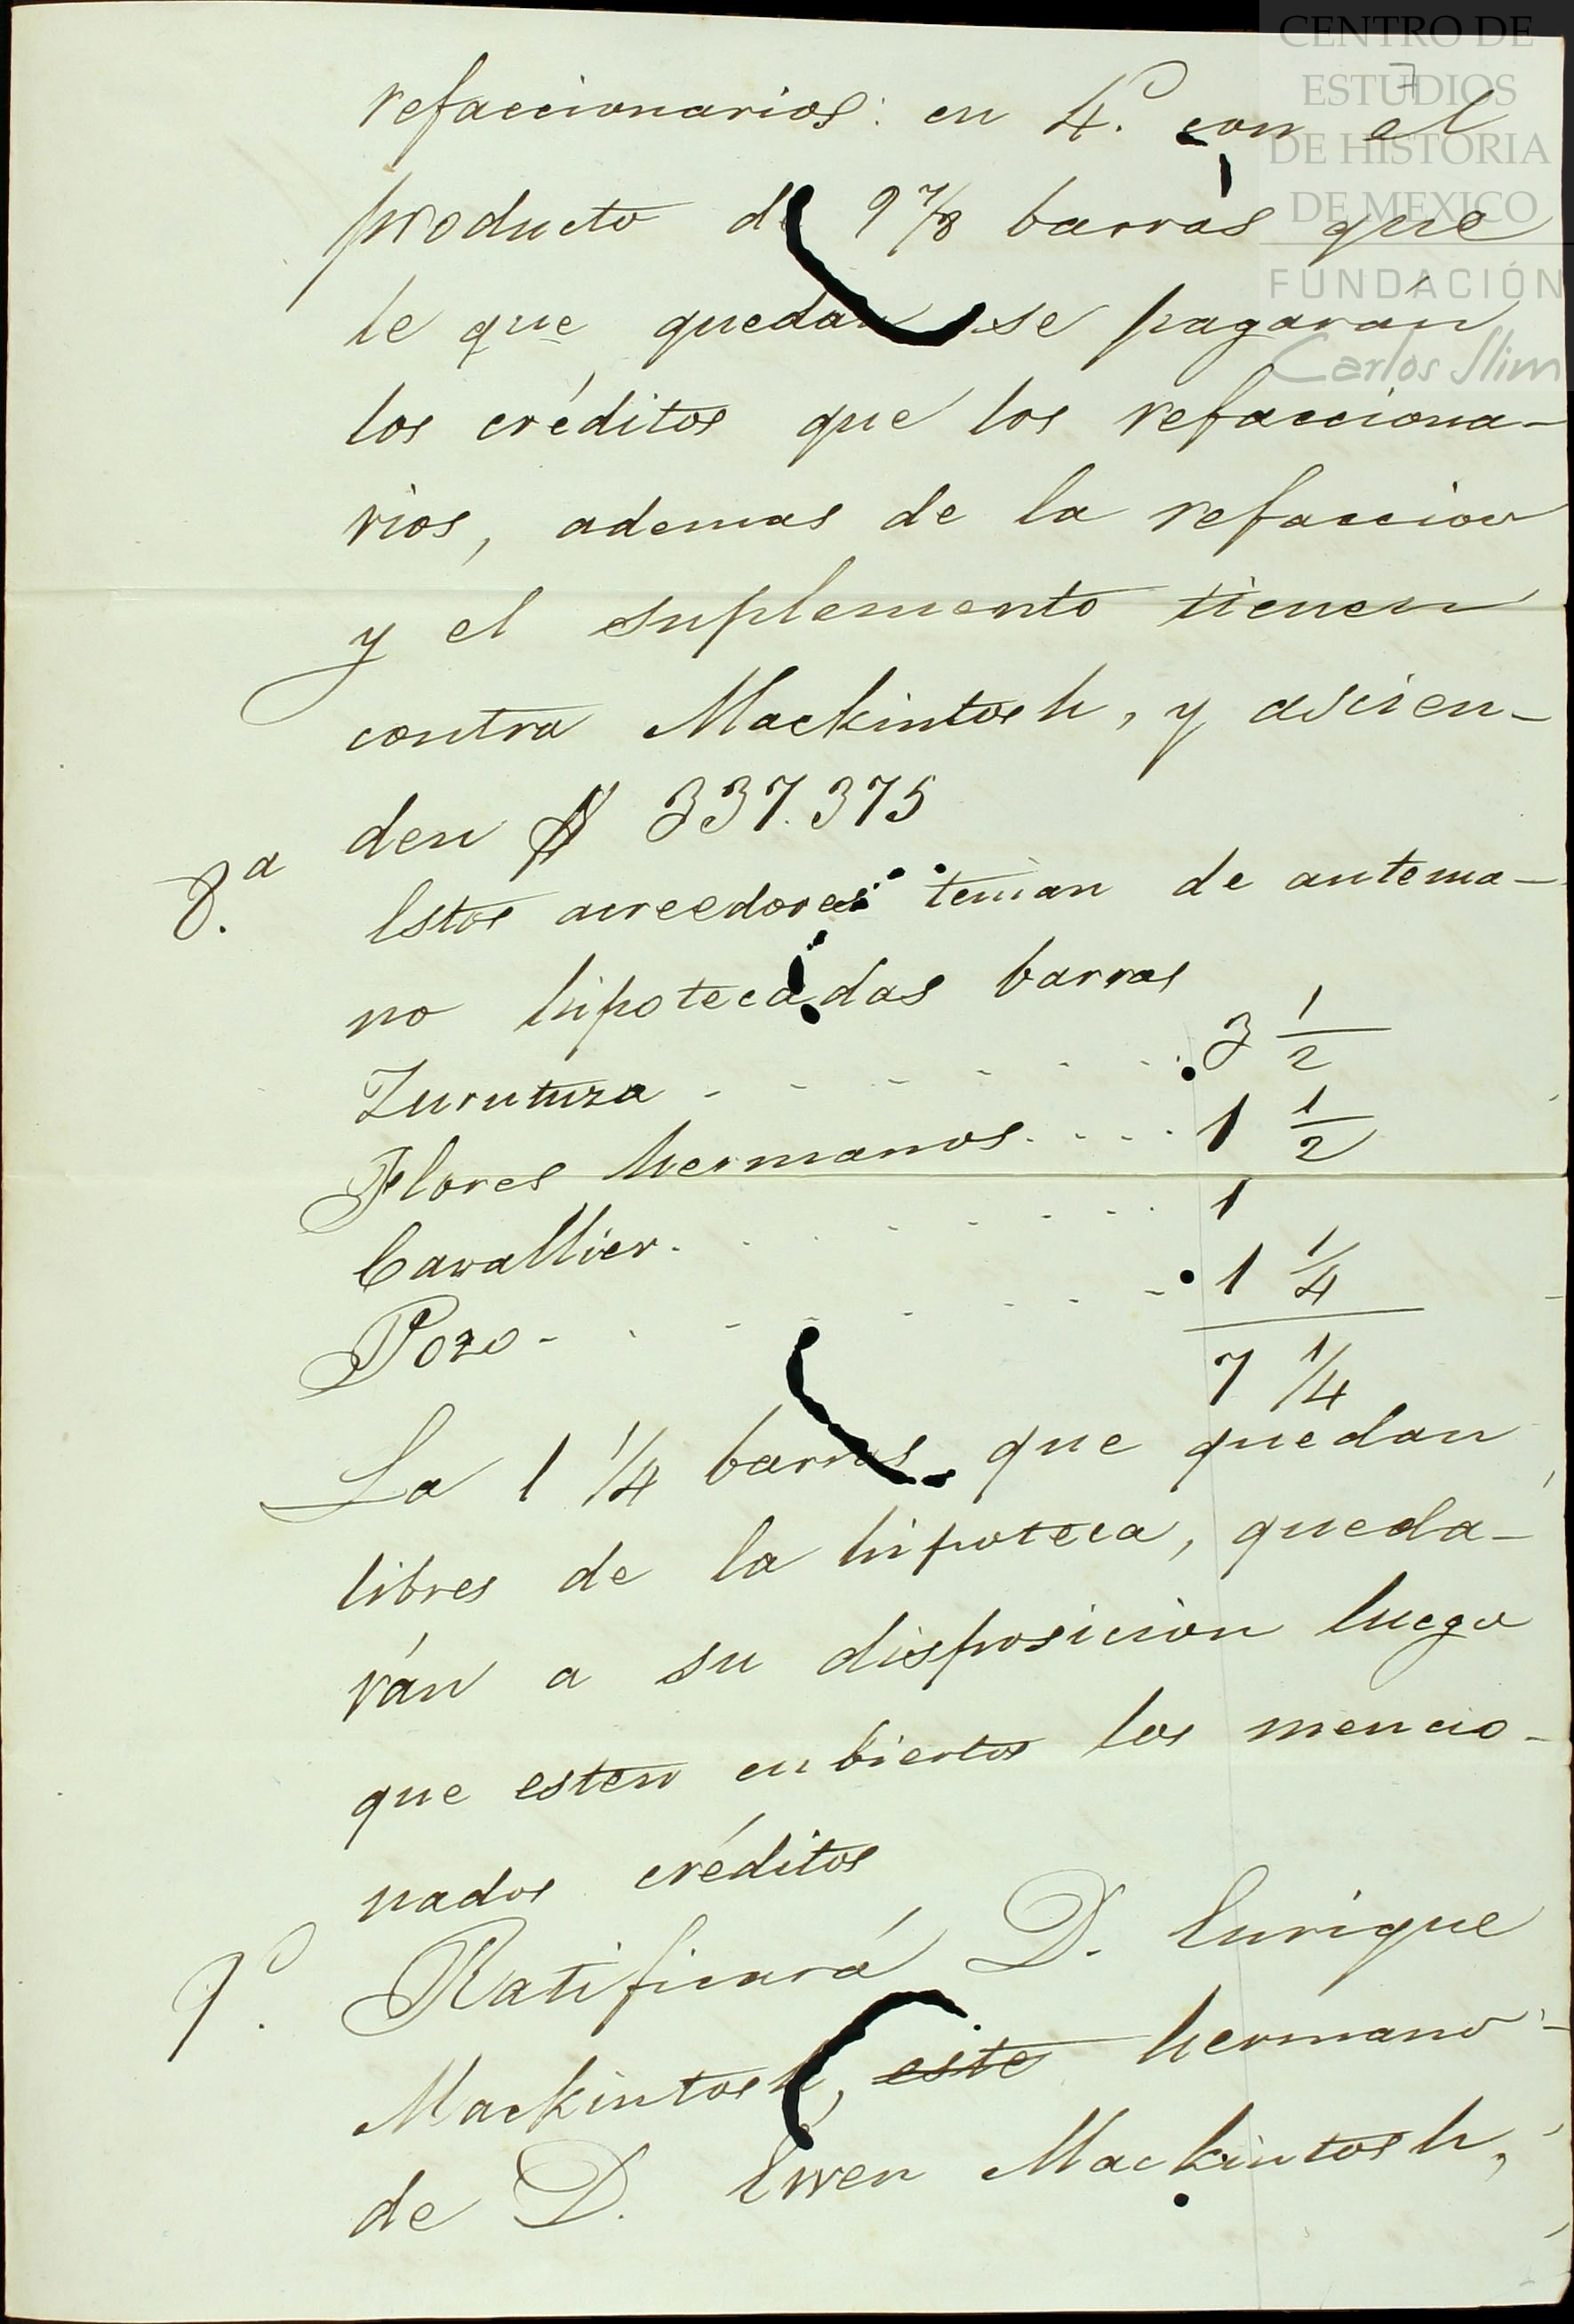 CENTRO DE
ESTUDIOS
DE HISTORIA
DE MEXICO
FUNDACIÓN
Carlos Slim
7
refaccionarios: en 4.º con el
producto de 9 7/8 barras que
le que quedan se pagarán
los créditos que los refacciona-
rios, ademas de la refaccion
y el suplemento tienen
contra Mackintosh, y ascien-
den $ 337.375
8.a Estos acreedores tenian de antema-
no hipotecadas barras
Zurutuza - - - - - - - 3 1/2
Flores hermanos. . . . . 1 1/2
Cavallier. . . . . . . . 1
Pozo - - - - - - - 1 1/4
7 1/4
La 1 1/4 barras que quedan
libres de la hipoteca, queda-
rán a su disposicion luego
que esten cubiertos los mencio-
nados créditos
9.º Ratificará D. Enrique
Mackintosh, este hermano
de D. Ewen Mackintosh,